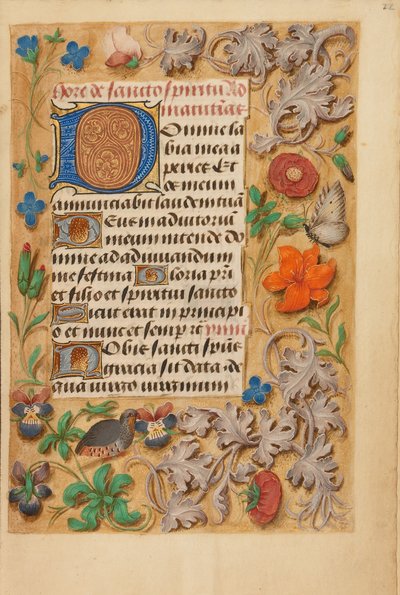 22
Hore de sancto spiritu Ad
matutinas
Domine la
bia mea a
peries Et
os meum
annunciabit laudem tuā
Deus in adiutoriū
meum intende do
mine ad adiuuandum
me festina Gloria pr̄i
et filio et spiritui sancto
Sicut erat in principio
et nunc et semper
Nobis sancti sp̄us
gracia sit data de
qua uirgo uirginum